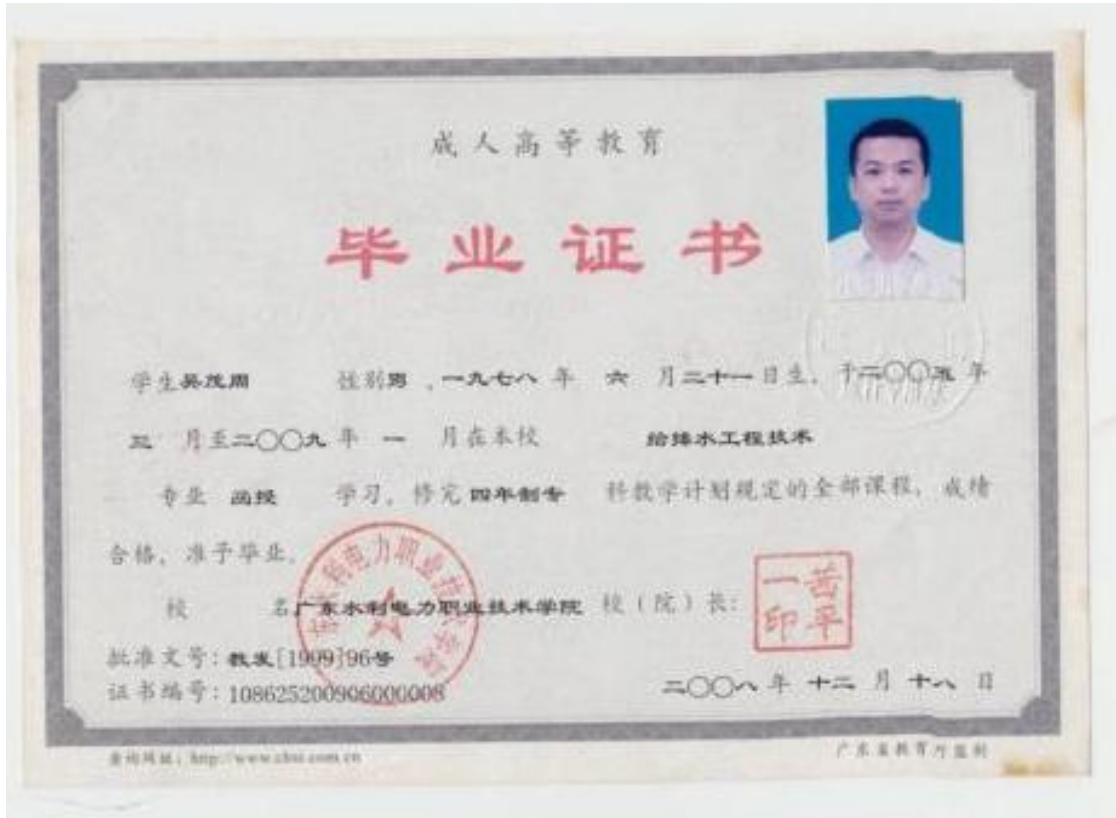 成人高等教育
毕业证书
学生吴茂周 性别男，一九七八年 六 月二十一日生，于二〇〇五年
三 月至二〇〇九年 一 月在本校 给排水工程技术
专业 函授 学习，修完四年制专 科教学计划规定的全部课程，成绩
合格，准予毕业。
校 名广东水利电力职业技术学院 校（院）长：
茜平一印
批准文号：教发[1999]96号
证书编号：108625200906000008
二〇〇八年 十二 月 十八 日
查询网址：http://www.chsi.com.cn
广东省教育厅监制